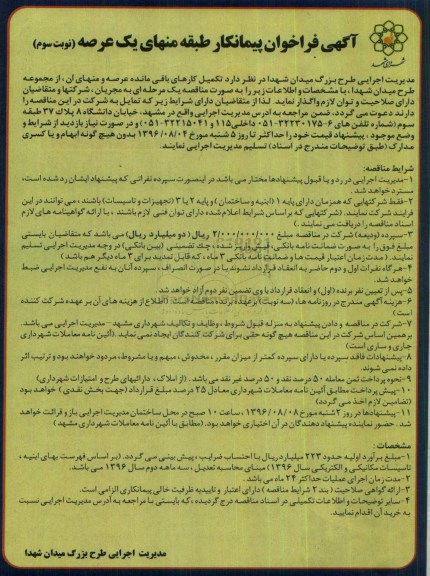 آگهی فراخوان پیمانکار طبقه منهای یک عرصه (نوبت سوم)
مدیریت اجرایی طرح بزرگ میدان شهدا در نظر دارد تکمیل کارهای باقی مانده عرصه و منهای آن، از مجموعه
طرح میدان شهدا، با مشخصات و اطلاعات زیر را به صورت مناقصه یک مرحله ای به مجریان، شرکتها و متقاضیان
دارای صلاحیت و توان لازم واگذار نماید. لذا از متقاضیان دارای شرایط زیر که تمایل به شرکت در این مناقصه را
دارند دعوت می گردد، ضمن مراجعه به آدرس مدیریت اجرایی واقع در مشهد، خیابان دانشگاه ۸ پلاک ۳۷ طبقه
سوم (شماره تلفن های ۶-۳۲۲۳۰۱۷۵-۰۵۱ داخلی ۱۱۵ و ۳۲۲۱۵۰۴۱-۰۵۱) و در صورت نیاز بازدید از شرایط و
وضع موجود، پیشنهاد قیمت خود را حداکثر تا روز ۵ شنبه مورخ ۱۳۹۶/۰۸/۰۴ بدون هیچ گونه ابهام و یا کسری
مدارک (طبق توضیحات مندرج در اسناد) تسلیم مدیریت اجرایی نمایند.
شرایط مناقصه:
۱-مدیریت اجرایی در رد و یا قبول پیشنهادها مختار می باشد در اینصورت سپرده نفراتی که پیشنهاد ایشان رد شده است،
مسترد خواهد شد.
۲-فقط شرکتهایی که همزمان دارای پایه ۱ (ابنیه و ساختمان) و پایه ۲ یا ۳ (تجهیزات و تاسیسات) باشند، می توانند در این
فرایند شرکت نمایند. (شرکتهایی که بر اساس شرایط اعلام شده دارای توان فنی لازم باشند، با ارائه گواهینامه های لازم
اسناد مناقصه را دریافت می نمایند)
۳-سپرده (ودیعه) شرکت در مناقصه مبلغ ۲/۰۰۰/۰۰۰/۰۰۰ ریال (دو میلیارد ریال) می باشد که متقاضیان بایستی
مبلغ فوق را به صورت ضمانت نامه بانکی، فیش واریز شده، چک تضمینی (بین بانکی) در وجه مدیریت اجرایی تسلیم
نمایند. (مدت زمان اعتبار قیمت ها و ضمانت نامه بانکی ۳ ماه، که قابل تمدید برای ۳ ماه دیگر هم باشد)
۴-هرگاه نفرات اول و دوم حاضر به انعقاد قرارداد نشوند یا در صورت انصراف، سپرده آنان به نفع مدیریت اجرایی ضبط
خواهد شد.
۵-پس از تعیین نفر برنده (اول) و انعقاد قرارداد با وی تضمین نفر دوم آزاد خواهد شد.
۶-هزینه آگهی مندرج در روزنامه ها، (سه نوبت) بر عهده برنده مناقصه است. (اطلاع از هزینه های آن بر عهده شرکت کننده
است)
۷-شرکت در مناقصه و دادن پیشنهاد به منزله قبول شروط، وظایف و تکالیف شهرداری مشهد - مدیریت اجرایی می باشد.
بر همین اساس شرکت در این مناقصه هیچ گونه حقی برای شرکت کنندگان ایجاد نمی نماید. (آئین نامه معاملات شهرداری
جاری و ساری است)
۸-پیشنهادات فاقد سپرده یا دارای سپرده کمتر از میزان مقرر، مخدوش، مبهم و یا مشروط، مردود خواهند بود و ترتیب اثر
داده نمی شوند.
۹-نحوه پرداخت ثمن معامله ۵۰ درصد نقد و ۵۰ درصد غیر نقد می باشد. (از املاک، دارائیهای طرح و امتیازات شهرداری)
۱۰-پیش پرداخت مطابق آئین نامه معاملات شهرداری معادل ۲۵ درصد مبلغ قرارداد (جهت بخش نقدی) خواهد بود
(تضامین لازم اخذ می گردد)
۱۱-پیشنهادها در روز ۲ شنبه مورخ ۱۳۹۶/۰۸/۰۸، ساعت ۱۰ صبح در محل ساختمان مدیریت اجرایی باز و قرائت خواهد
شد. حضور نماینده پیشنهاد دهندگان در آن اختیاری خواهد بود. (مطابق با آئین نامه معاملات شهرداری مشهد)
مشخصات:
۱-مبلغ برآورد اولیه حدود ۲۲۳ میلیارد ریال با احتساب ضرایب، پیش بینی می گردد. (بر اساس فهرست بهای ابنیه،
تاسیسات مکانیکی و الکتریکی سال ۱۳۹۶) مبنای محاسبه تعدیل، سه ماهه دوم سال ۱۳۹۶ می باشد.
۲-مدت زمان اجرای عملیات حداکثر ۲۴ ماه می باشد.
۳-ارائه گواهی صلاحیت (بند ۲ شرایط مناقصه) دارای اعتبار و تاییدیه ظرفیت خالی پیمانکاری الزامی است.
۴-سایر توضیحات و اطلاعات تکمیلی در اسناد مناقصه درج گردیده، که بایستی با مراجعه به آدرس مدیریت اجرایی نسبت
به خرید آن اقدام نمایید.
مدیریت اجرایی طرح بزرگ میدان شهدا